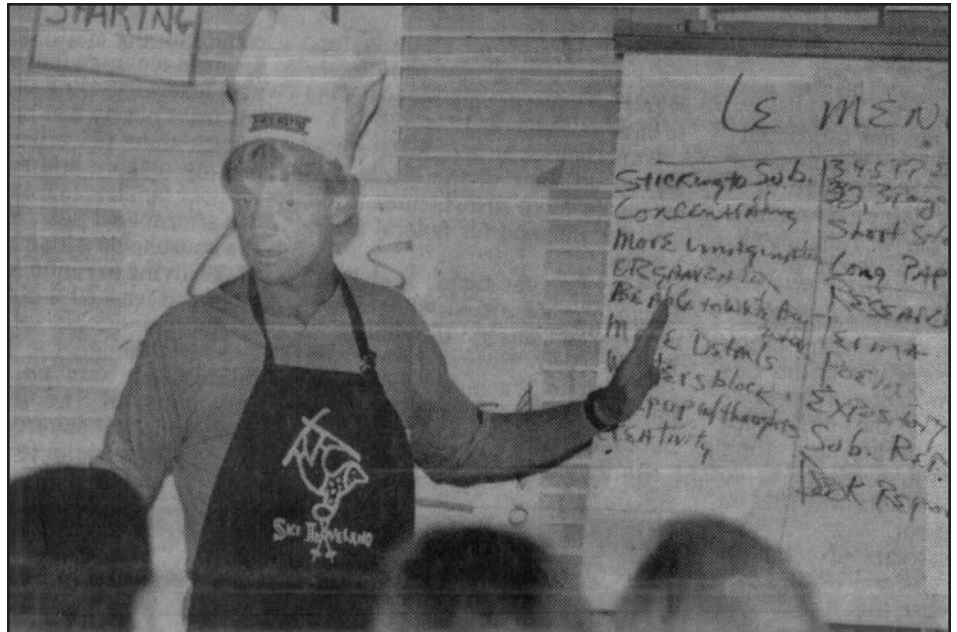 SPARING
LE MEN
Sticking to Sub.
Concentrating
More imagination
ORGANIZATION
Be Able to write
More Details
Writers block
up w/ thoughts
CREATIVITY
345 PP
3 page
Short Sto
Long PAP
RESEARC
Term
Poem
Expository
Sub. Rep.
Book Repor
SKI LOVELAND